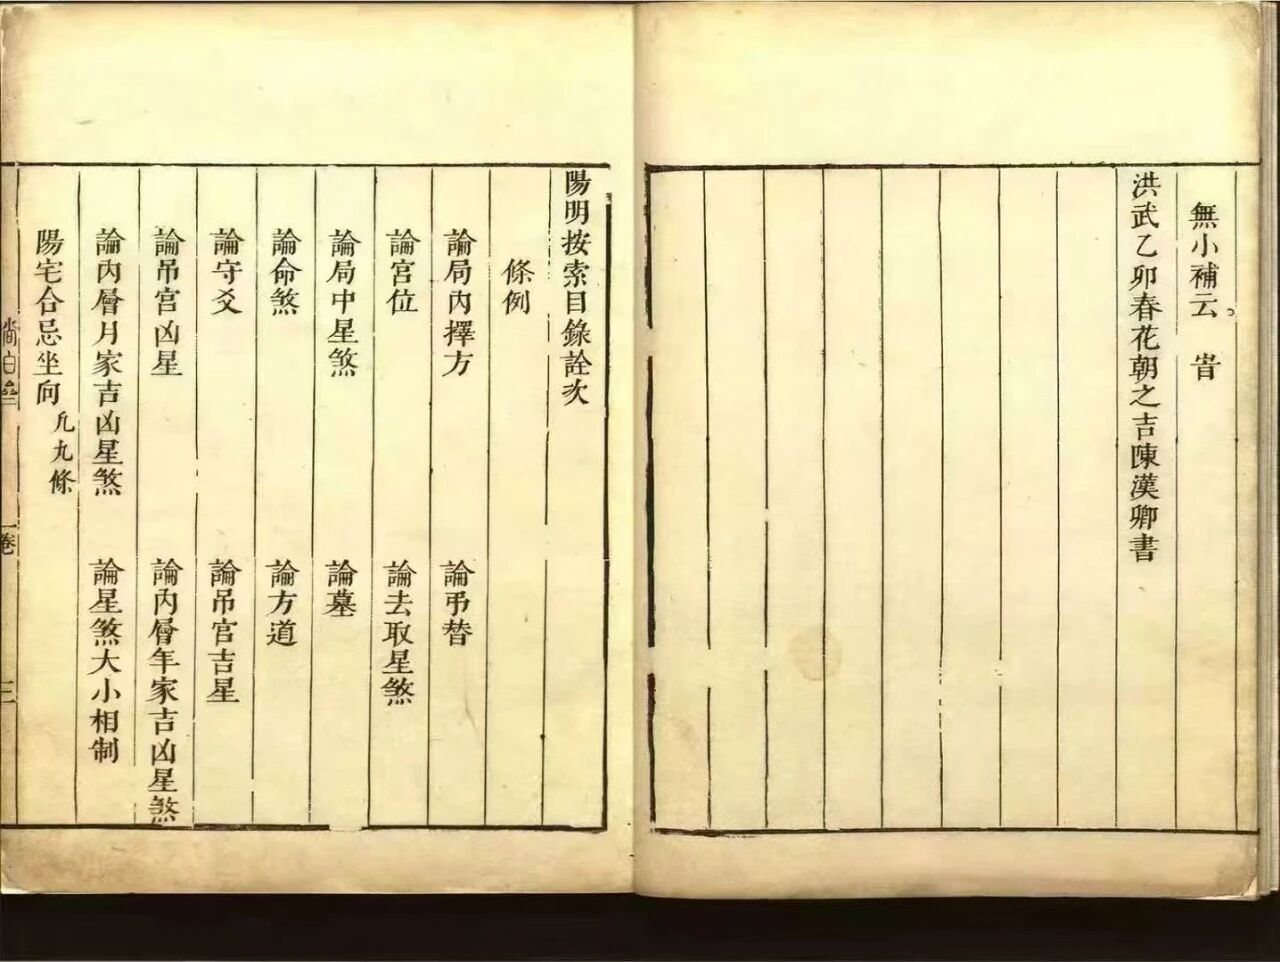 無小補云　旹
洪武乙卯春花朝之吉陳漢卿書
陽明按索目錄詮次
條例
論局內擇方　論弔替
論宮位　論去取星煞
論局中星煞　論墓
論命煞　論方道
論守爻　論吊宮吉星
論吊宮凶星　論內層年家吉凶星煞
論內層月家吉凶星煞　論星煞大小相制
陽宅合忌坐向　凡九條
卷　三